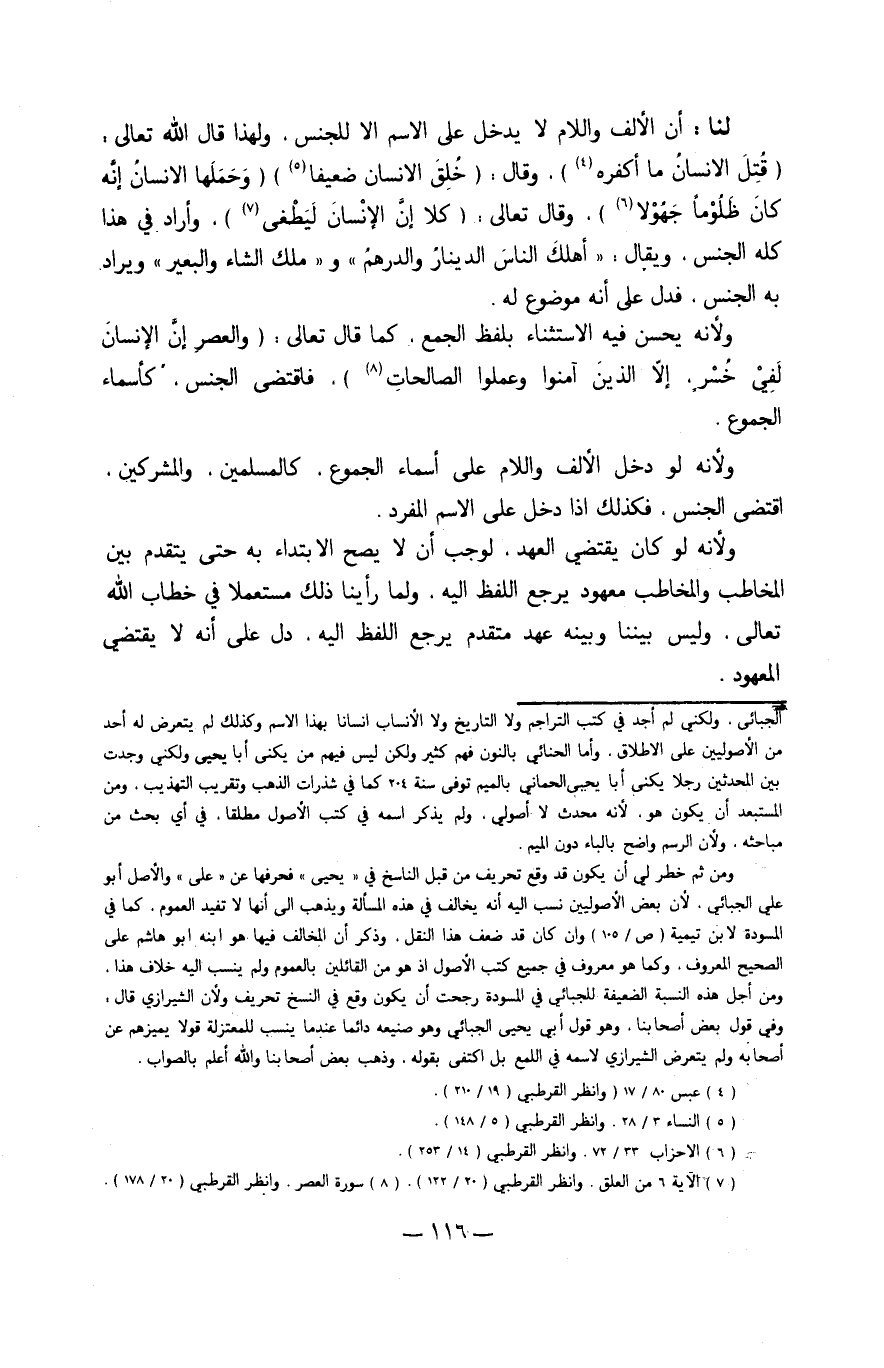 لنا : أن الألف واللام لا يدخل على الاسم الا للجنس . ولهذا قال الله تعالى :
( قُتِلَ الانسانُ ما أكفره(٤) ) . وقال : ( خُلِقَ الانسان ضعيفا(٥) ) ( وَحَمَلَها الانسانُ إنَّه
كانَ ظَلُوْماً جَهُوْلا(٦) ) . وقال تعالى : ( كلا إنَّ الإنْسانَ لَيَطْغى(٧) ) . وأراد في هذا
كله الجنس . ويقال : « أهلكَ الناسَ الدينارُ والدرهمُ » و « ملك الشاء والبعير » ويراد
به الجنس . فدل على أنه موضوع له .
ولأنه يحسن فيه الاستثناء بلفظ الجمع . كما قال تعالى : ( والعصرِ إنَّ الإنسانَ
لَفِيْ خُسْرٍ . إلّا الذينَ آمنوا وعملوا الصالحاتِ(٨) ) . فاقتضى الجنس . كأسماء
الجموع .
ولأنه لو دخل الألف واللام على أسماء الجموع . كالمسلمين . والمشركين .
اقتضى الجنس . فكذلك اذا دخل على الاسم المفرد .
ولأنه لو كان يقتضي العهد . لوجب أن لا يصح الابتداء به حتى يتقدم بين
المخاطب والمخاطب معهود يرجع اللفظ اليه . ولما رأينا ذلك مستعملا في خطاب الله
تعالى . وليس بيننا وبينه عهد متقدم يرجع اللفظ اليه . دل على أنه لا يقتضي
المعهود .
الجبائى . ولكني لم أجد في كتب التراجم ولا التاريخ ولا الأنساب انسانا بهذا الاسم وكذلك لم يتعرض له أحد
من الأصوليين على الاطلاق . وأما الحنائي بالنون فهم كثير ولكن ليس فيهم من يكنى أبا يحيى ولكني وجدت
بين المحدثين رجلا يكنى أبا يحيى الحماني بالميم توفى سنة ٢٠٤ كما في شذرات الذهب وتقريب التهذيب . ومن
المستبعد أن يكون هو . لأنه محدث لا أصولي . ولم يذكر اسمه في كتب الأصول مطلقا . في أي بحث من
مباحثه . ولأن الرسم واضح بالباء دون الميم .
ومن ثم خطر لي أن يكون قد وقع تحريف من قبل الناسخ في « يحيى » فحرفها عن « على » والأصل أبو
علي الجبائي . لأن بعض الأصوليين نسب اليه أنه يخالف في هذه المسألة ويذهب الى أنها لا تفيد العموم . كما في
المسودة لابن تيمية ( ص / ١٠٥ ) وان كان قد ضعف هذا النقل . وذكر أن المخالف فيها هو ابنه ابو هاشم على
الصحيح المعروف . وكما هو معروف في جميع كتب الأصول اذ هو من القائلين بالعموم ولم ينسب اليه خلاف هذا .
ومن أجل هذه النسبة الضعيفة للجبائي في المسودة رجحت أن يكون وقع في النسخ تحريف ولأن الشيرازي قال :
وفي قول بعض أصحابنا . وهو قول أبي يحيى الجبائي وهو صنيعه دائما عندما ينسب للمعتزلة قولا يميزهم عن
أصحابه ولم يتعرض الشيرازي لاسمه في اللمع بل اكتفى بقوله . وذهب بعض أصحابنا والله أعلم بالصواب .
( ٤ ) عبس ٨٠ / ١٧ ( وانظر القرطبي ( ١٩ / ٢١٠ ) .
( ٥ ) النساء ٣ / ٢٨ . وانظر القرطبي ( ٥ / ١٤٨ ) .
( ٦ ) الاحزاب ٣٣ / ٧٢ . وانظر القرطبي ( ١٤ / ٢٥٣ ) .
( ٧ ) الآية ٦ من العلق . وانظر القرطبي ( ٢٠ / ١٢٢ ) . ( ٨ ) سورة العصر . وانظر القرطبي ( ٢٠ / ١٧٨ ) .
— ١١٦ —